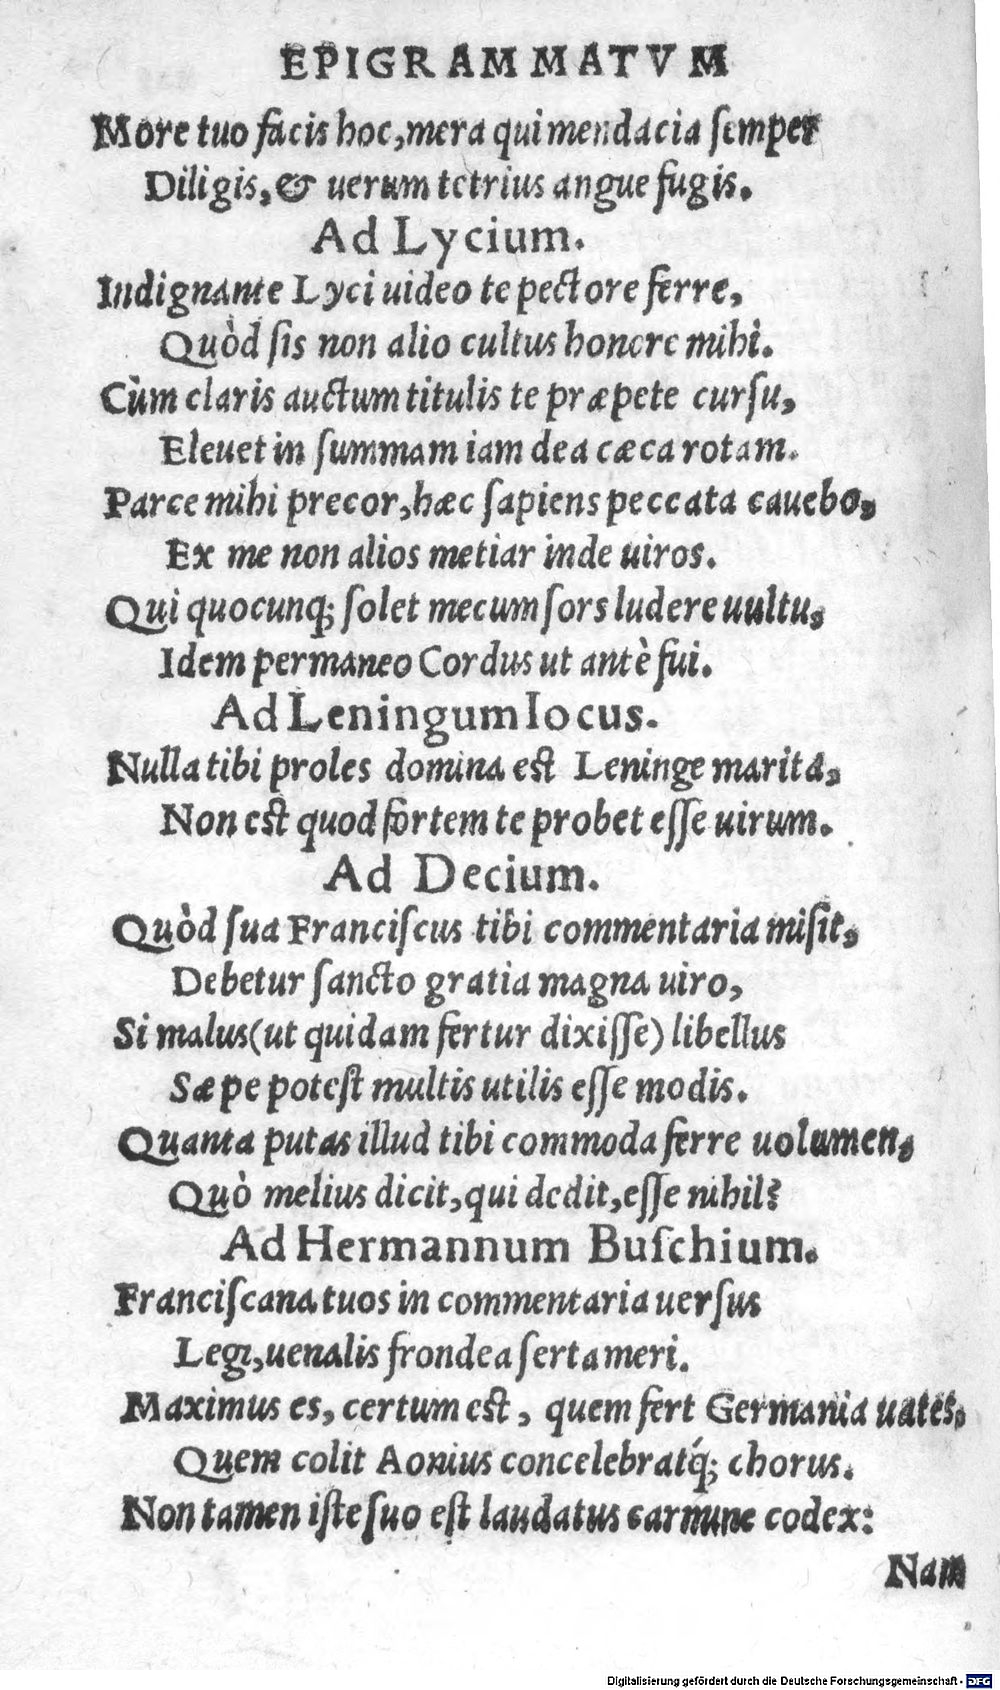 EPIGRAMMATVM
More tuo facis hoc, mera qui mendacia ſemper
Diligis, & uerum tetrius angue fugis.
Ad Lycium.
Indignante Lyci uideo te pectore ferre,
Quòd ſis non alio cultus honore mihi.
Cùm claris auctum titulis te præpete curſu,
Eleuet in ſummam iam dea cæca rotam.
Parce mihi precor, hæc ſapiens peccata cauebo,
Ex me non alios metiar inde uiros.
Qui quocunq; ſolet mecum ſors ludere uultu,
Idem permaneo Cordus ut antè fui.
Ad Leningum Iocus.
Nulla tibi proles domina est Leninge marita,
Non est quod fortem te probet eſſe uirum.
Ad Decium.
Quòd ſua Franciſcus tibi commentaria miſit,
Debetur ſancto gratia magna uiro,
Si malus (ut quidam fertur dixiſſe) libellus
Sæpe poteſt multis utilis eſſe modis.
Quanta putas illud tibi commoda ferre uolumen,
Quò melius dicit, qui dedit, eſſe nihil?
Ad Hermannum Buſchium.
Franciſcana tuos in commentaria uerſus
Legi, uenalis frondea ſerta meri.
Maximus es, certum est, quem fert Germania uates,
Quem colit Aonius concelebratq́; chorus.
Non tamen iſte ſuo eſt laudatus carmine codex:
Nam
Digitalisierung gefördert durch die Deutsche Forschungsgemeinschaft - DFG